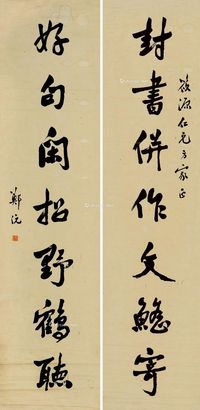 筱源仁兄方家正
封書併作文鰩寄
好句閑招野鶴聽
鄭沅